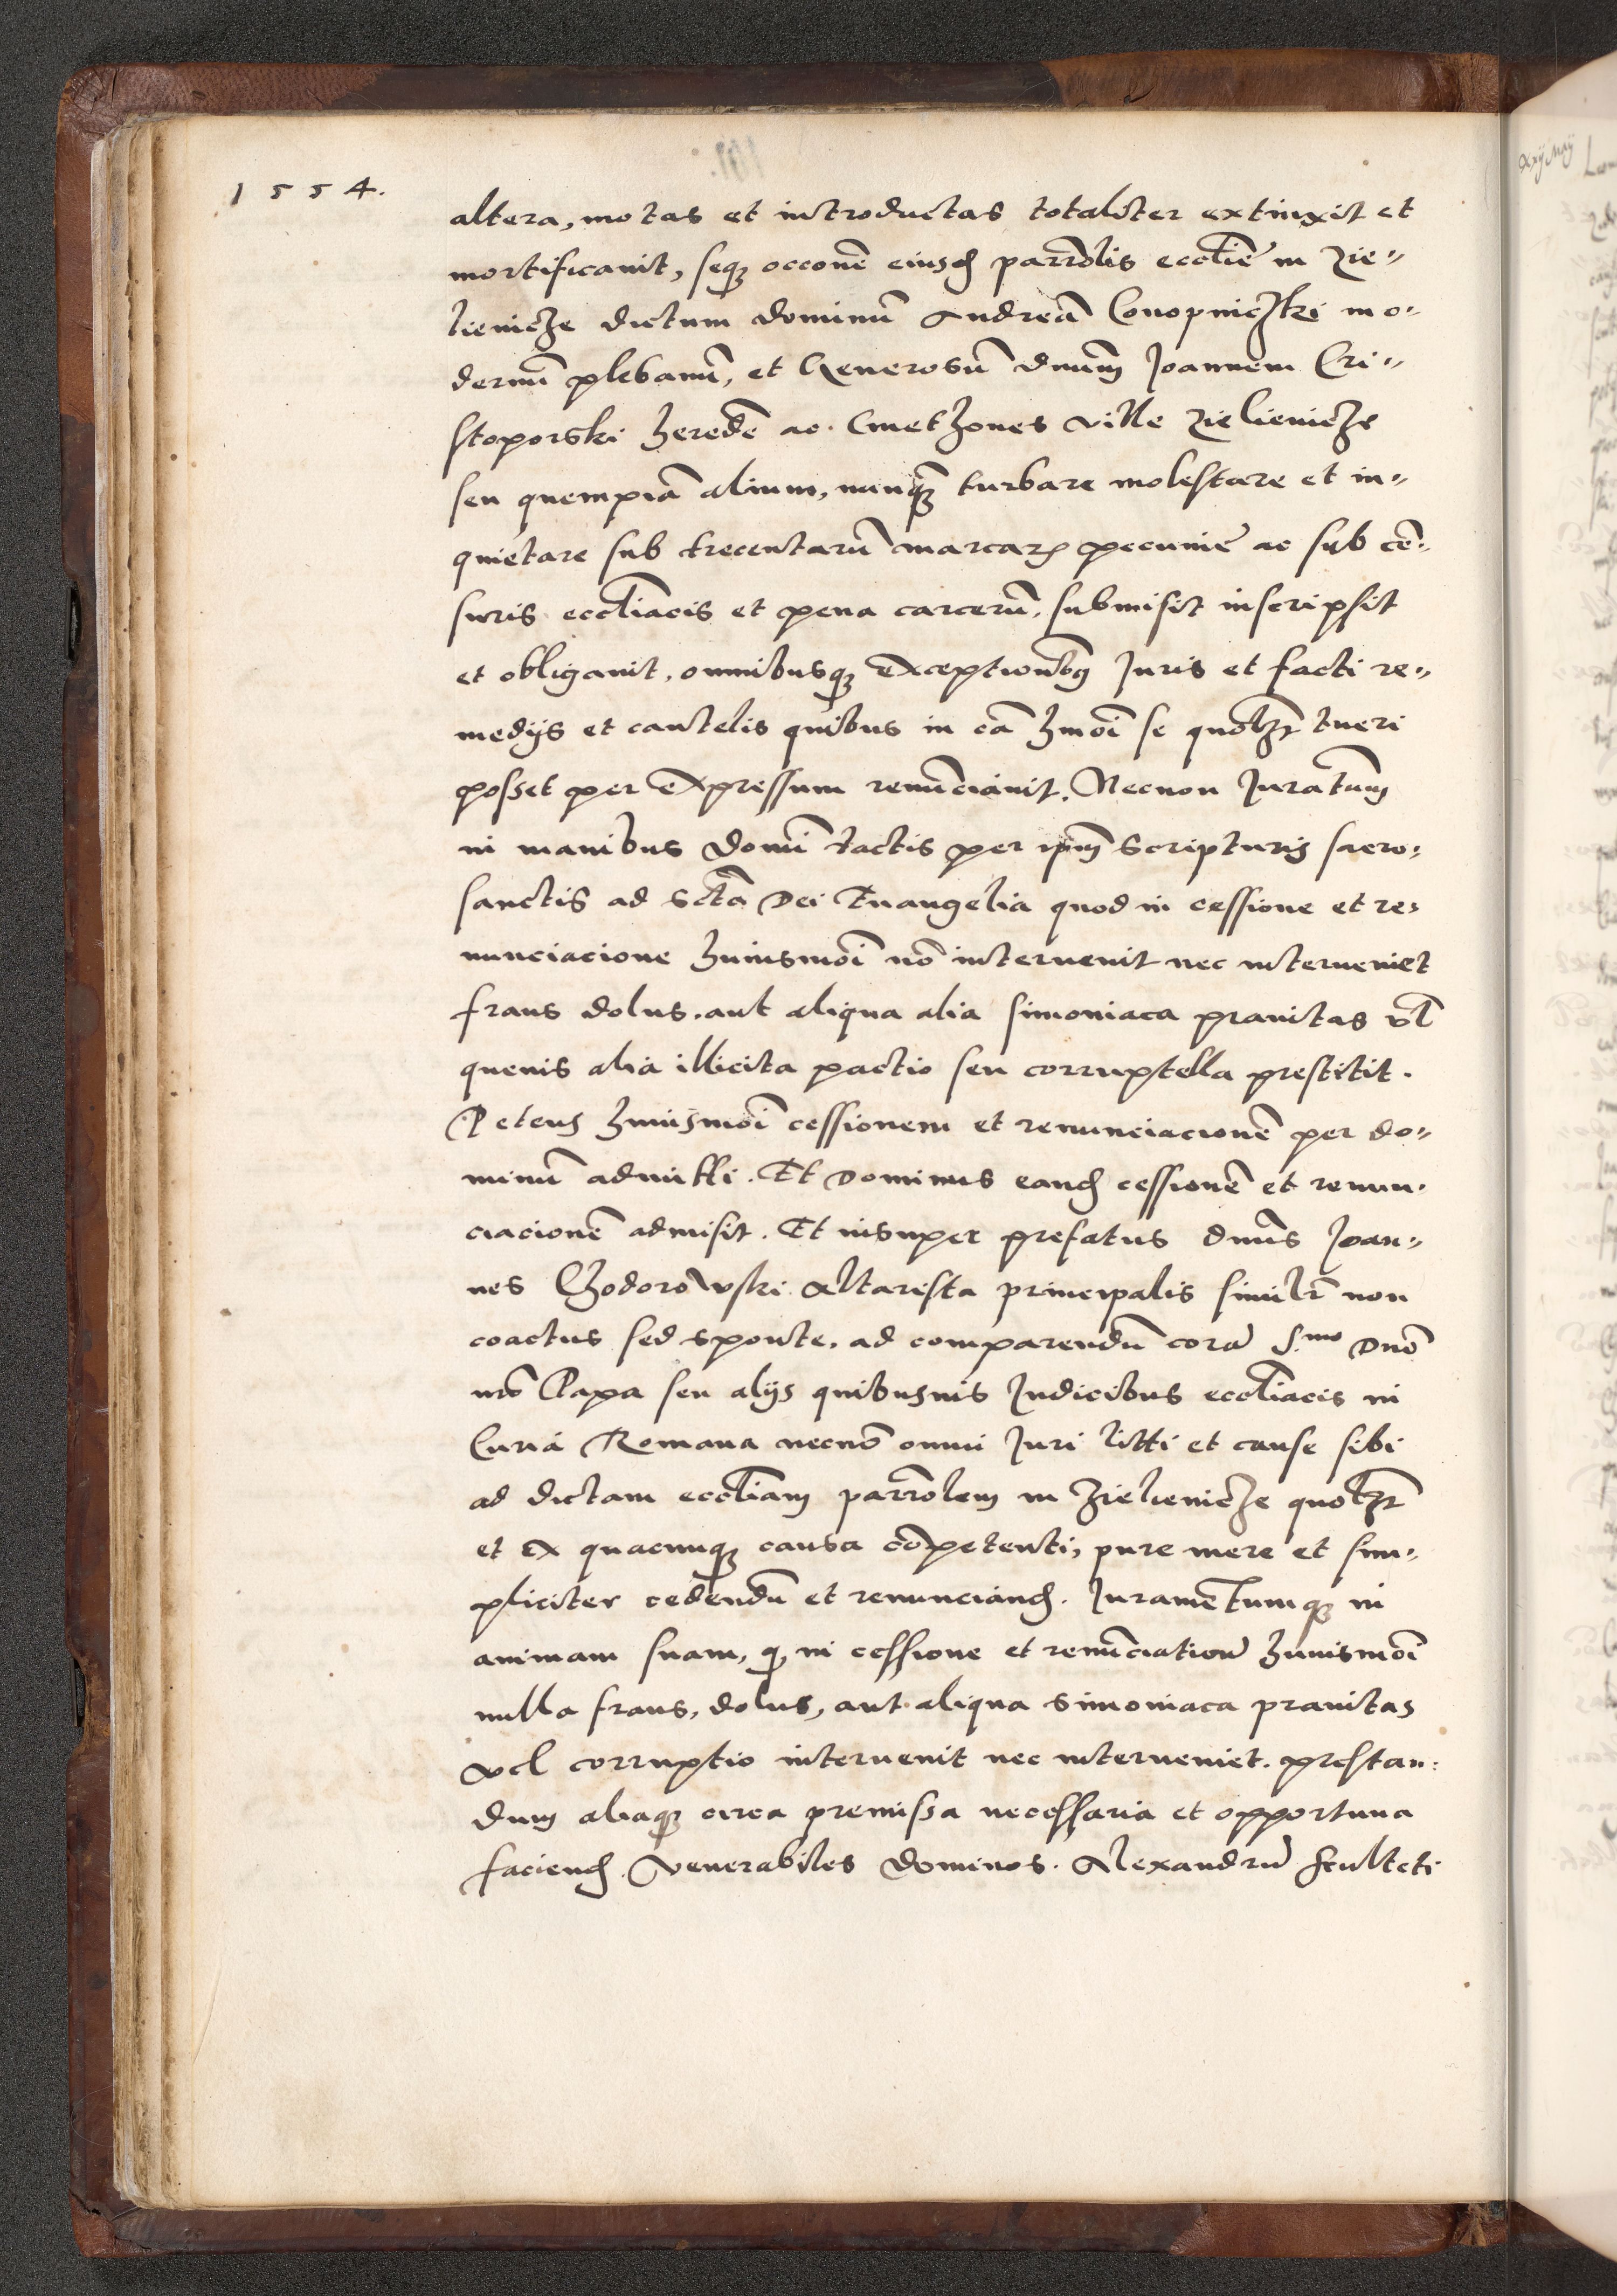 1554.
altera, motas et introductas totaliter extinxit et
mortificauit, seqꝫ occonē eiusdꝫ parrōlis eccłiē in Zie-
lienicze dictum dominū Andreā Conopniczki mo-
dernū plebanū, et Generosū dnūm Joannem Cri-
stoporski heredē ac Cmethones ville Zielienicze
seu quempiā alium, nunqꝫ turbare molestare et in-
quietare sub trecentarū marcarꝝ pecunie ac sub cē-
suris eccłiacis et pena carcerū, submisit inscripsit
et obligauit, omnibusqꝫ exceptionibꝫ Juris et facti re-
medijs et cautelis quibus in cā hmōi se quołzt tueri
posset per expressum renūciauit. Necnon Juratum
in manibus domī tactis per ipm̄ scripturis sacro-
sanctis ad sctā Dei Euangelia quod in cessione et re-
nunciacione huiusmōi nō interuenit nec interueniet
fraus dolus, aut aliqua alia simoniaca prauitas vł
queuis alia illicita pactio seu corruptella prestitit.
Petens huiusmōi cessionem et renunciacionē per do-
minū admitti. Et Dominus eandꝫ cessionē et renun-
ciacionē admisit. Et insuper prefatus dnūs Joan-
nes Chodorowski Altarista principalis similr̄ non
coactus sed sponte, ad comparendū corā S.mo Dnō
nrō Papa seu alijs quibusuis Judicibus eccłiacis in
Curia Romana necnō omni Juri litti et cause sibi
ad dictam eccłiam parrōlem in Zielienicze quołzt
et ex quacunqꝫ causa cōpetenti, pure mere et sim-
pliciter cedendū et renunciandꝫ. Juramentumqꝫ in
animam suam, qꝫ in cessione et renūciatione huiusmōi
nulla fraus, dolus, aut aliqua simoniaca prauitas
vel corruptio interuenit nec interueniet. prestan-
dum aliaqꝫ circa premissa necessaria et opportuna
faciendꝫ. Venerabiles Dominos. Alexandrū Sculteti
xxij Maij